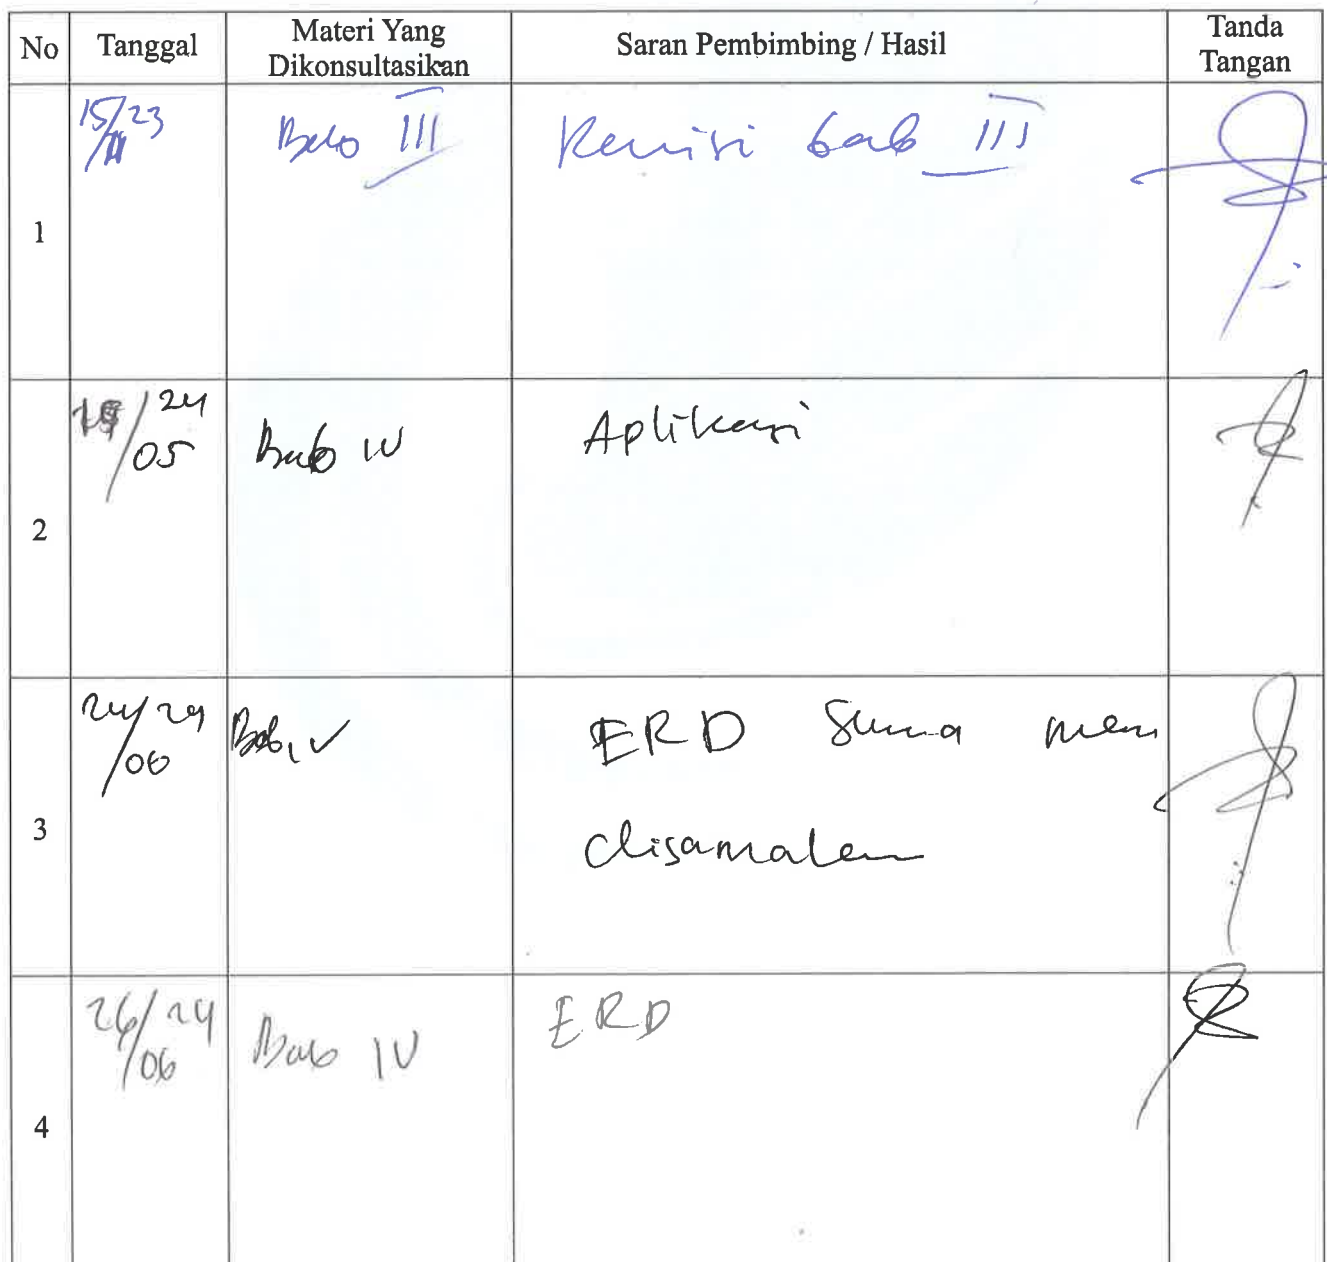 No Tanggal Materi Yang Dikonsultasikan Saran Pembimbing / Hasil Tanda Tangan
1 15/23 Bab III Revisi bab III
2 24 /05 Bab IV Aplikasi
3 24/24 /06 Bab IV ERD
disamakan
4 26/24 /06 Bab IV ERD